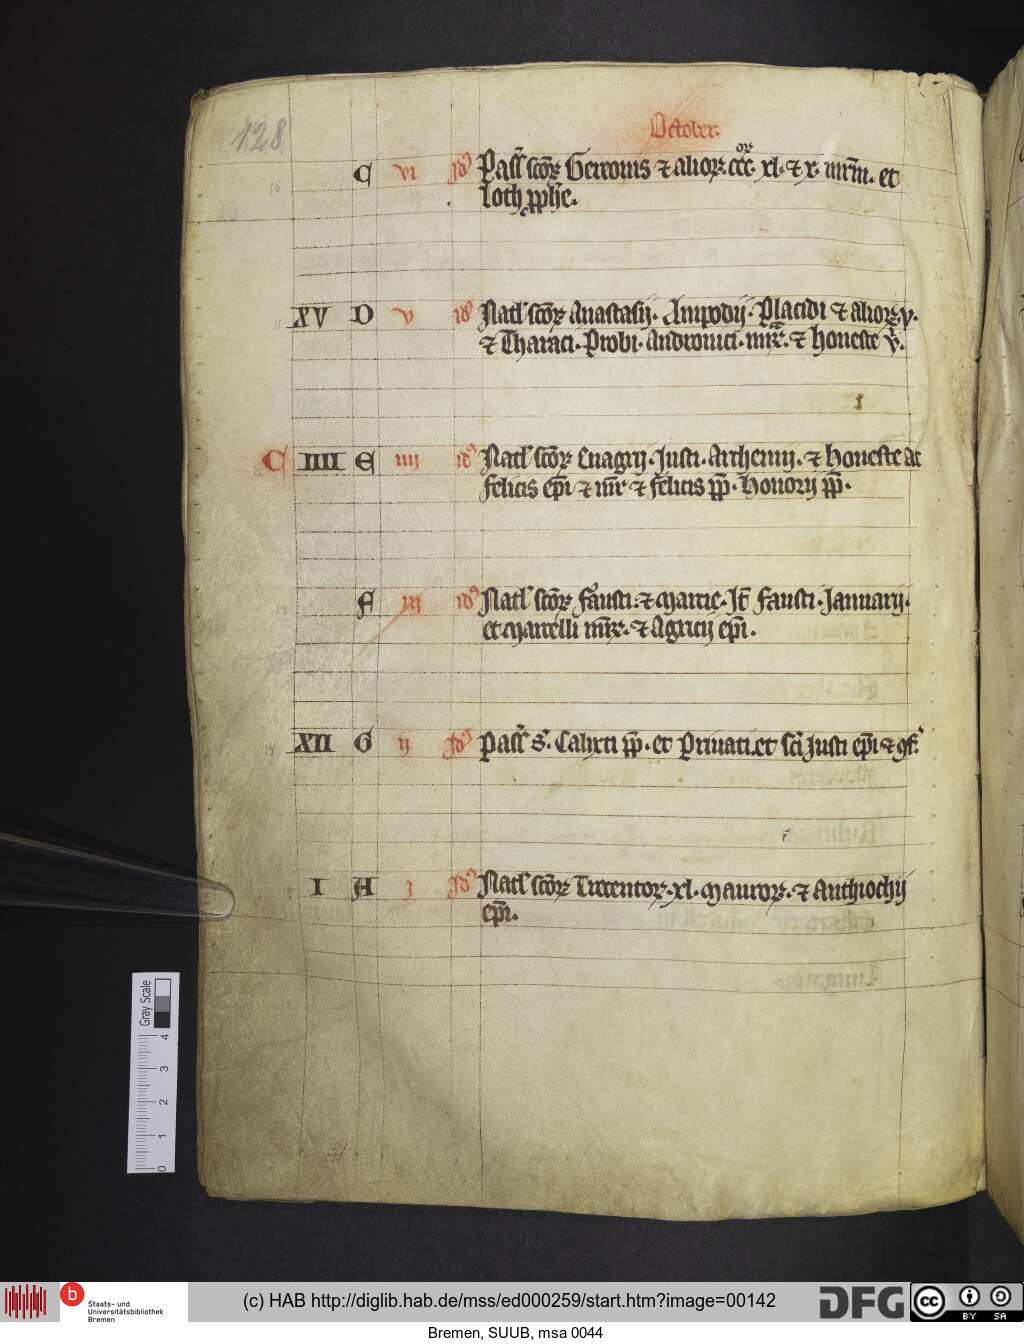 October.
128
10 C VI Id' Pass' sctor̄ Gereonis ⁊ alior. ccc. or xl. ⁊ x. mr̄m. et
Loth pphe.
11 XV D V id' Natl' sctor̄ Anastasij. Ampodij. Placidi ⁊ alior v.
⁊ Tharaci. Probi. Andronici. mr̄. ⁊ honeste v'.
C IIII E IIII id' Natl' sctor̄ Euagrij. Justi. Arthemij. ⁊ honeste ac
felicis ep̄i ⁊ mr̄ ⁊ felicis pp̄. Honorij pp̄.
F III id' Natl' sctor̄ fausti. ⁊ Marcie. It̄ fausti. Januarij.
et Marcelli mr̄. ⁊ Agricij ep̄i.
14 XII G II Id' Pass' s̄. Calixti pp̄. et Priuati. et sc̄i Justi ep̄i ⁊ ꝯf.'
I A I Id' Natl' sctor̄ Trecentor. xl. Mauror. ⁊ Anthiochij
ep̄i.
Gray Scale
4
3
2
1
0
b Staats- und
Universitätsbibliothek
Bremen
(c) HAB http://diglib.hab.de/mss/ed000259/start.htm?image=00142
DFG
cc BY SA
Bremen, SUUB, msa 0044